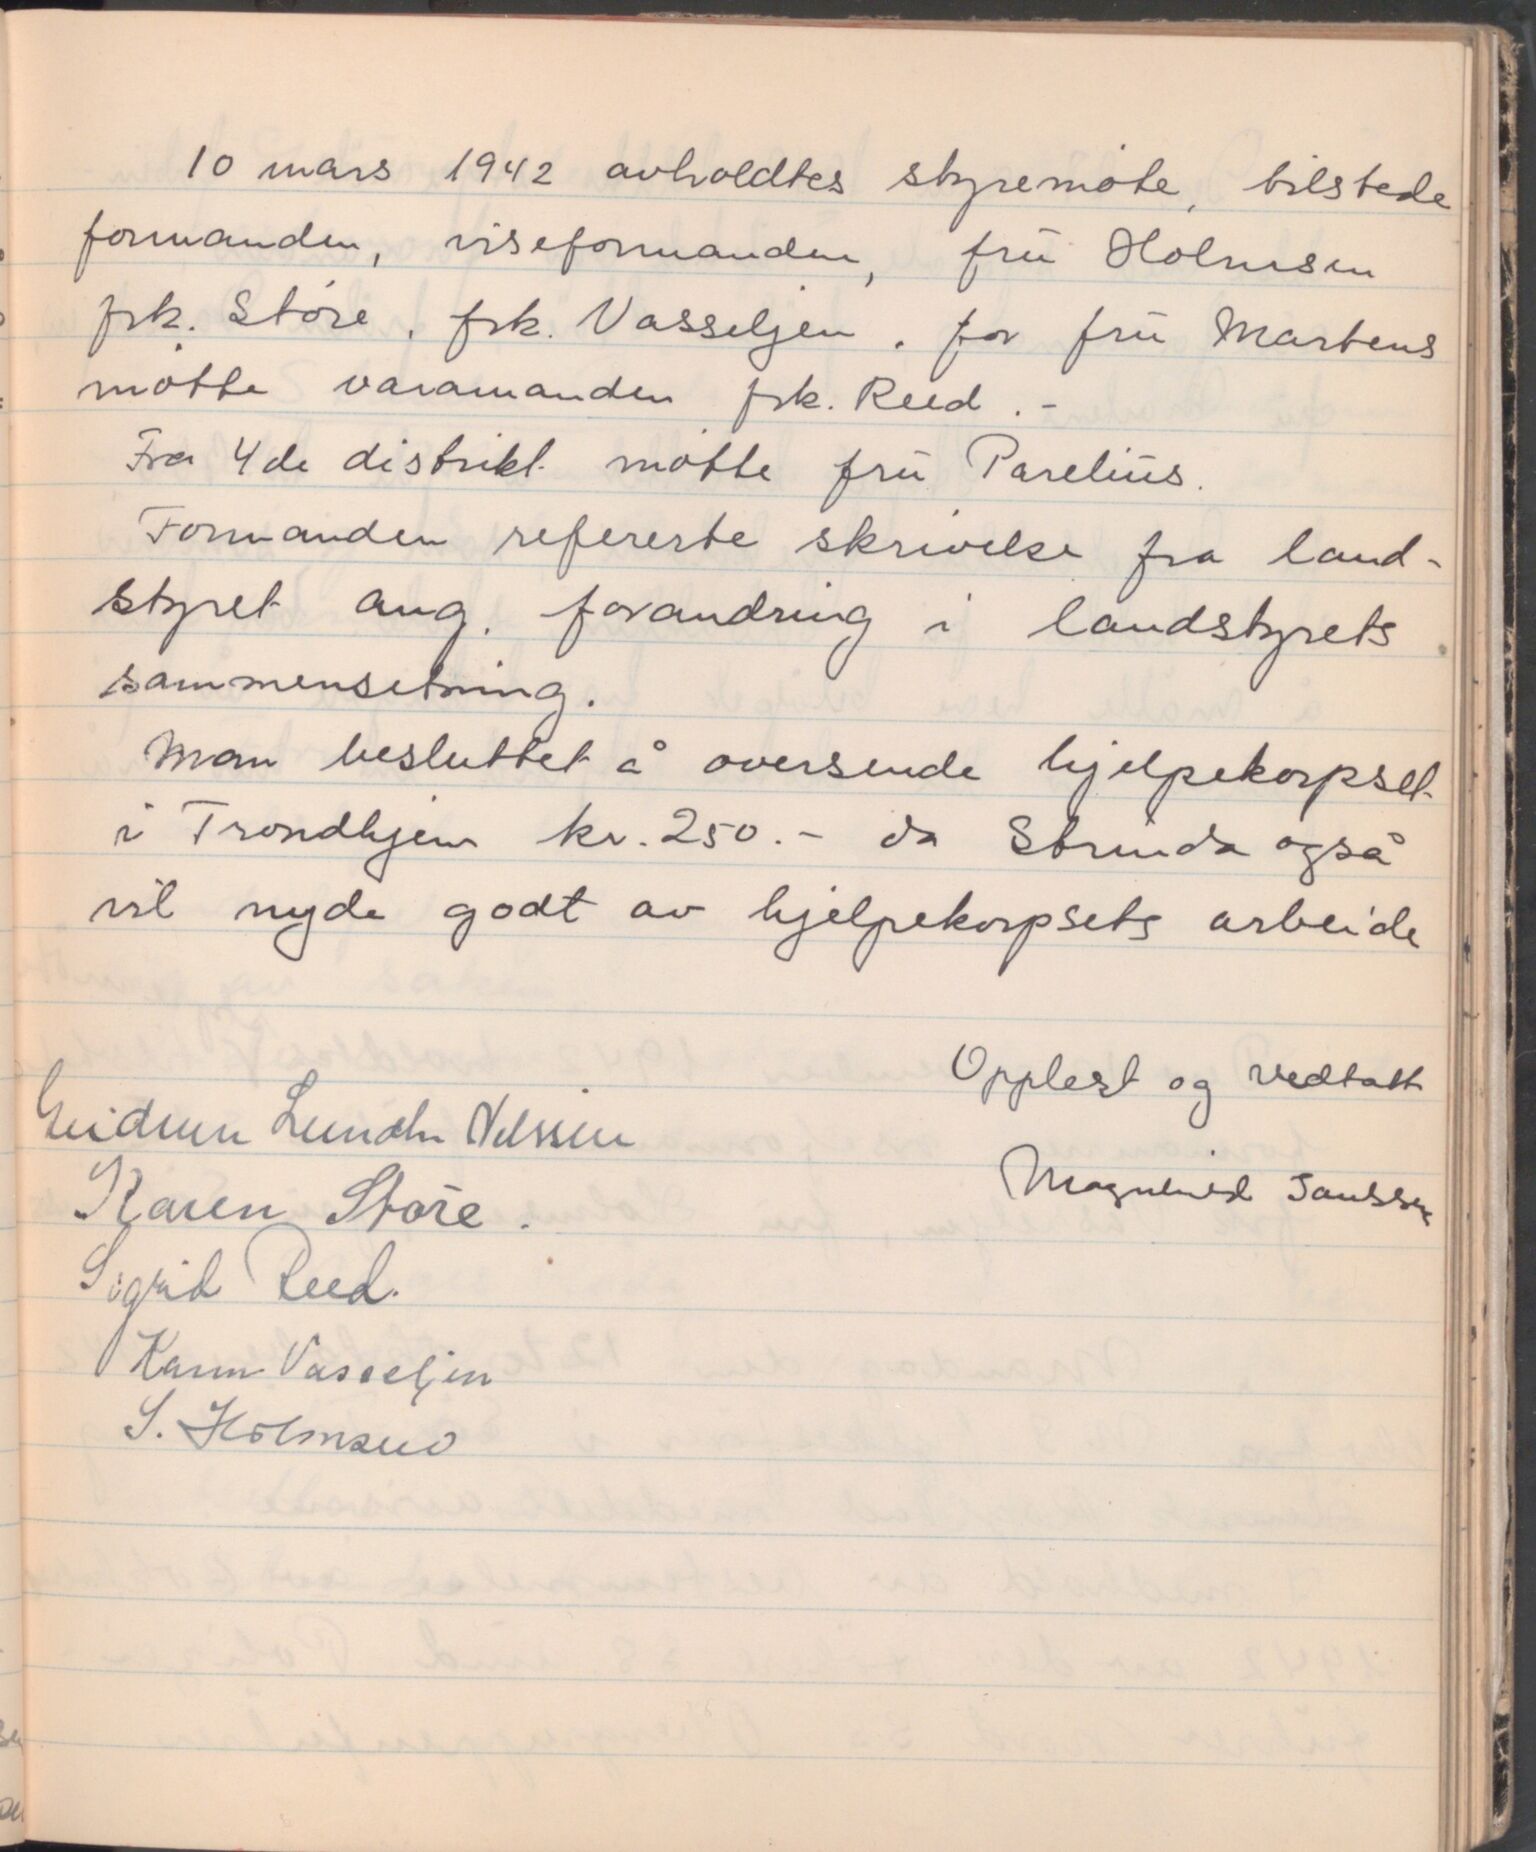 10 mars 1942 avholdtes styremöte, tilstede
formanden, viseformanden, frü Holmsen
frk. Störe, frk. Vasseljen. for frü Martens
mötte varamanden frk. Reed .-
Fra 4de distrikt mötte frü Pareliüs.
Formanden refererte skrivelse fra land-
styret ang. forandring i landstyrets
sammensetning.
Man besluttet å oversende hjelpekorpset
i Trondhjem kr. 250.- da Strinda også
vil nyde godt av hjelpekorpsets arbeide
Opplest og vedtatt
Gudrun Lundh Nilssen
Magnhild Janssen
Karen Störe.
Sigrid Reed.
Karin Vasseljen
S. Holmsen